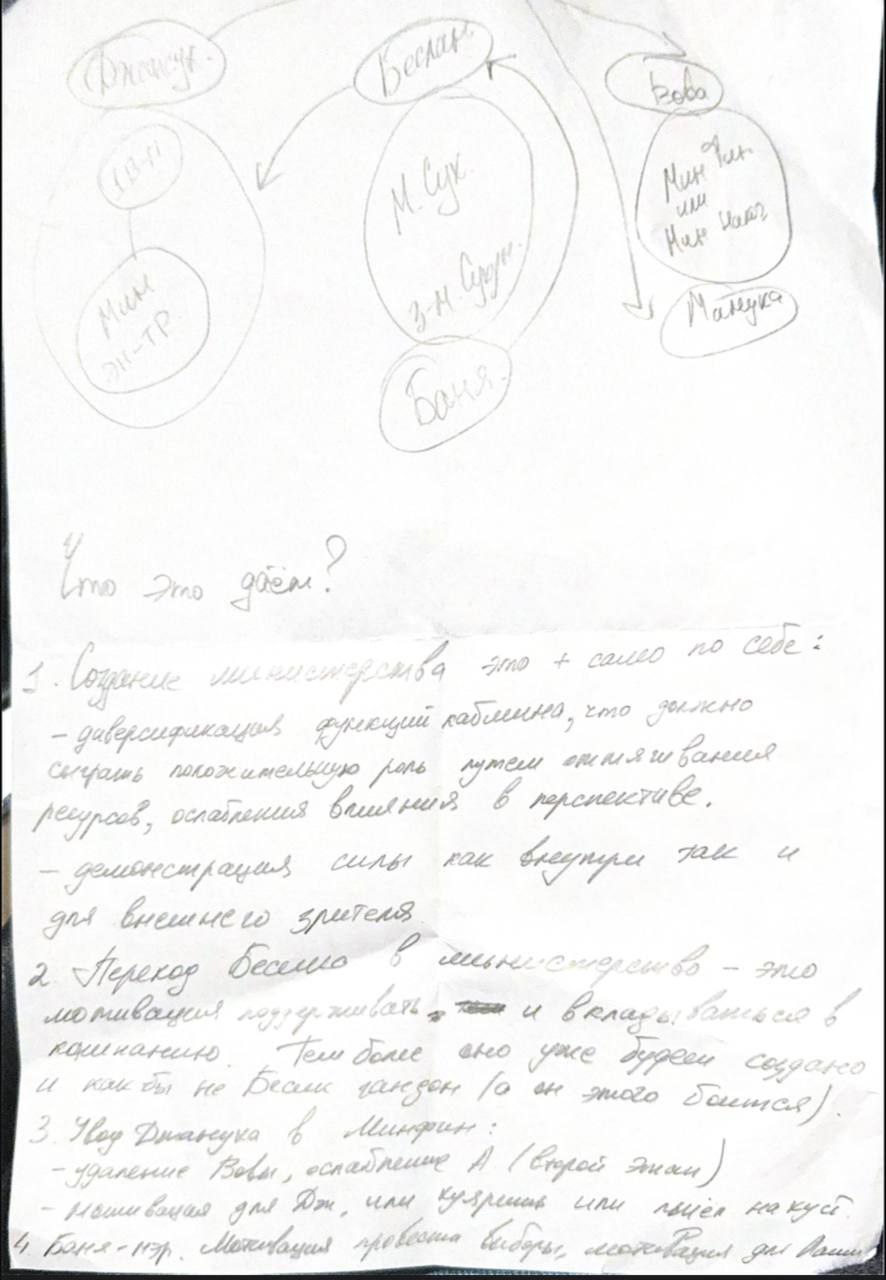 Беслан
Вова
М. Сух.
Мин Фин.
или
Мин
Мин
эн-тр.
Манука
Баня.
Что это даём?
1. Создание министерства это + само по себе:
– диверсификация функций кабмина, что должно
сыграть положительную роль путем оттягивания
ресурсов, ослабления влияния в перспективе.
– демонстрация силы как внутри так и
для внешнего зрителя
2. Переход в министерство – это
мотивация поддерживать и вкладываться в
компанию. Тем более оно уже будет создано
и как бы не гандон (а он этого боится).
3. Увод в Минфин:
– удаление Вовы, ослабление А (второй этап)
– мотивация для Дж, или или
4. Баня – Мотивация провести выборы, мотивация для